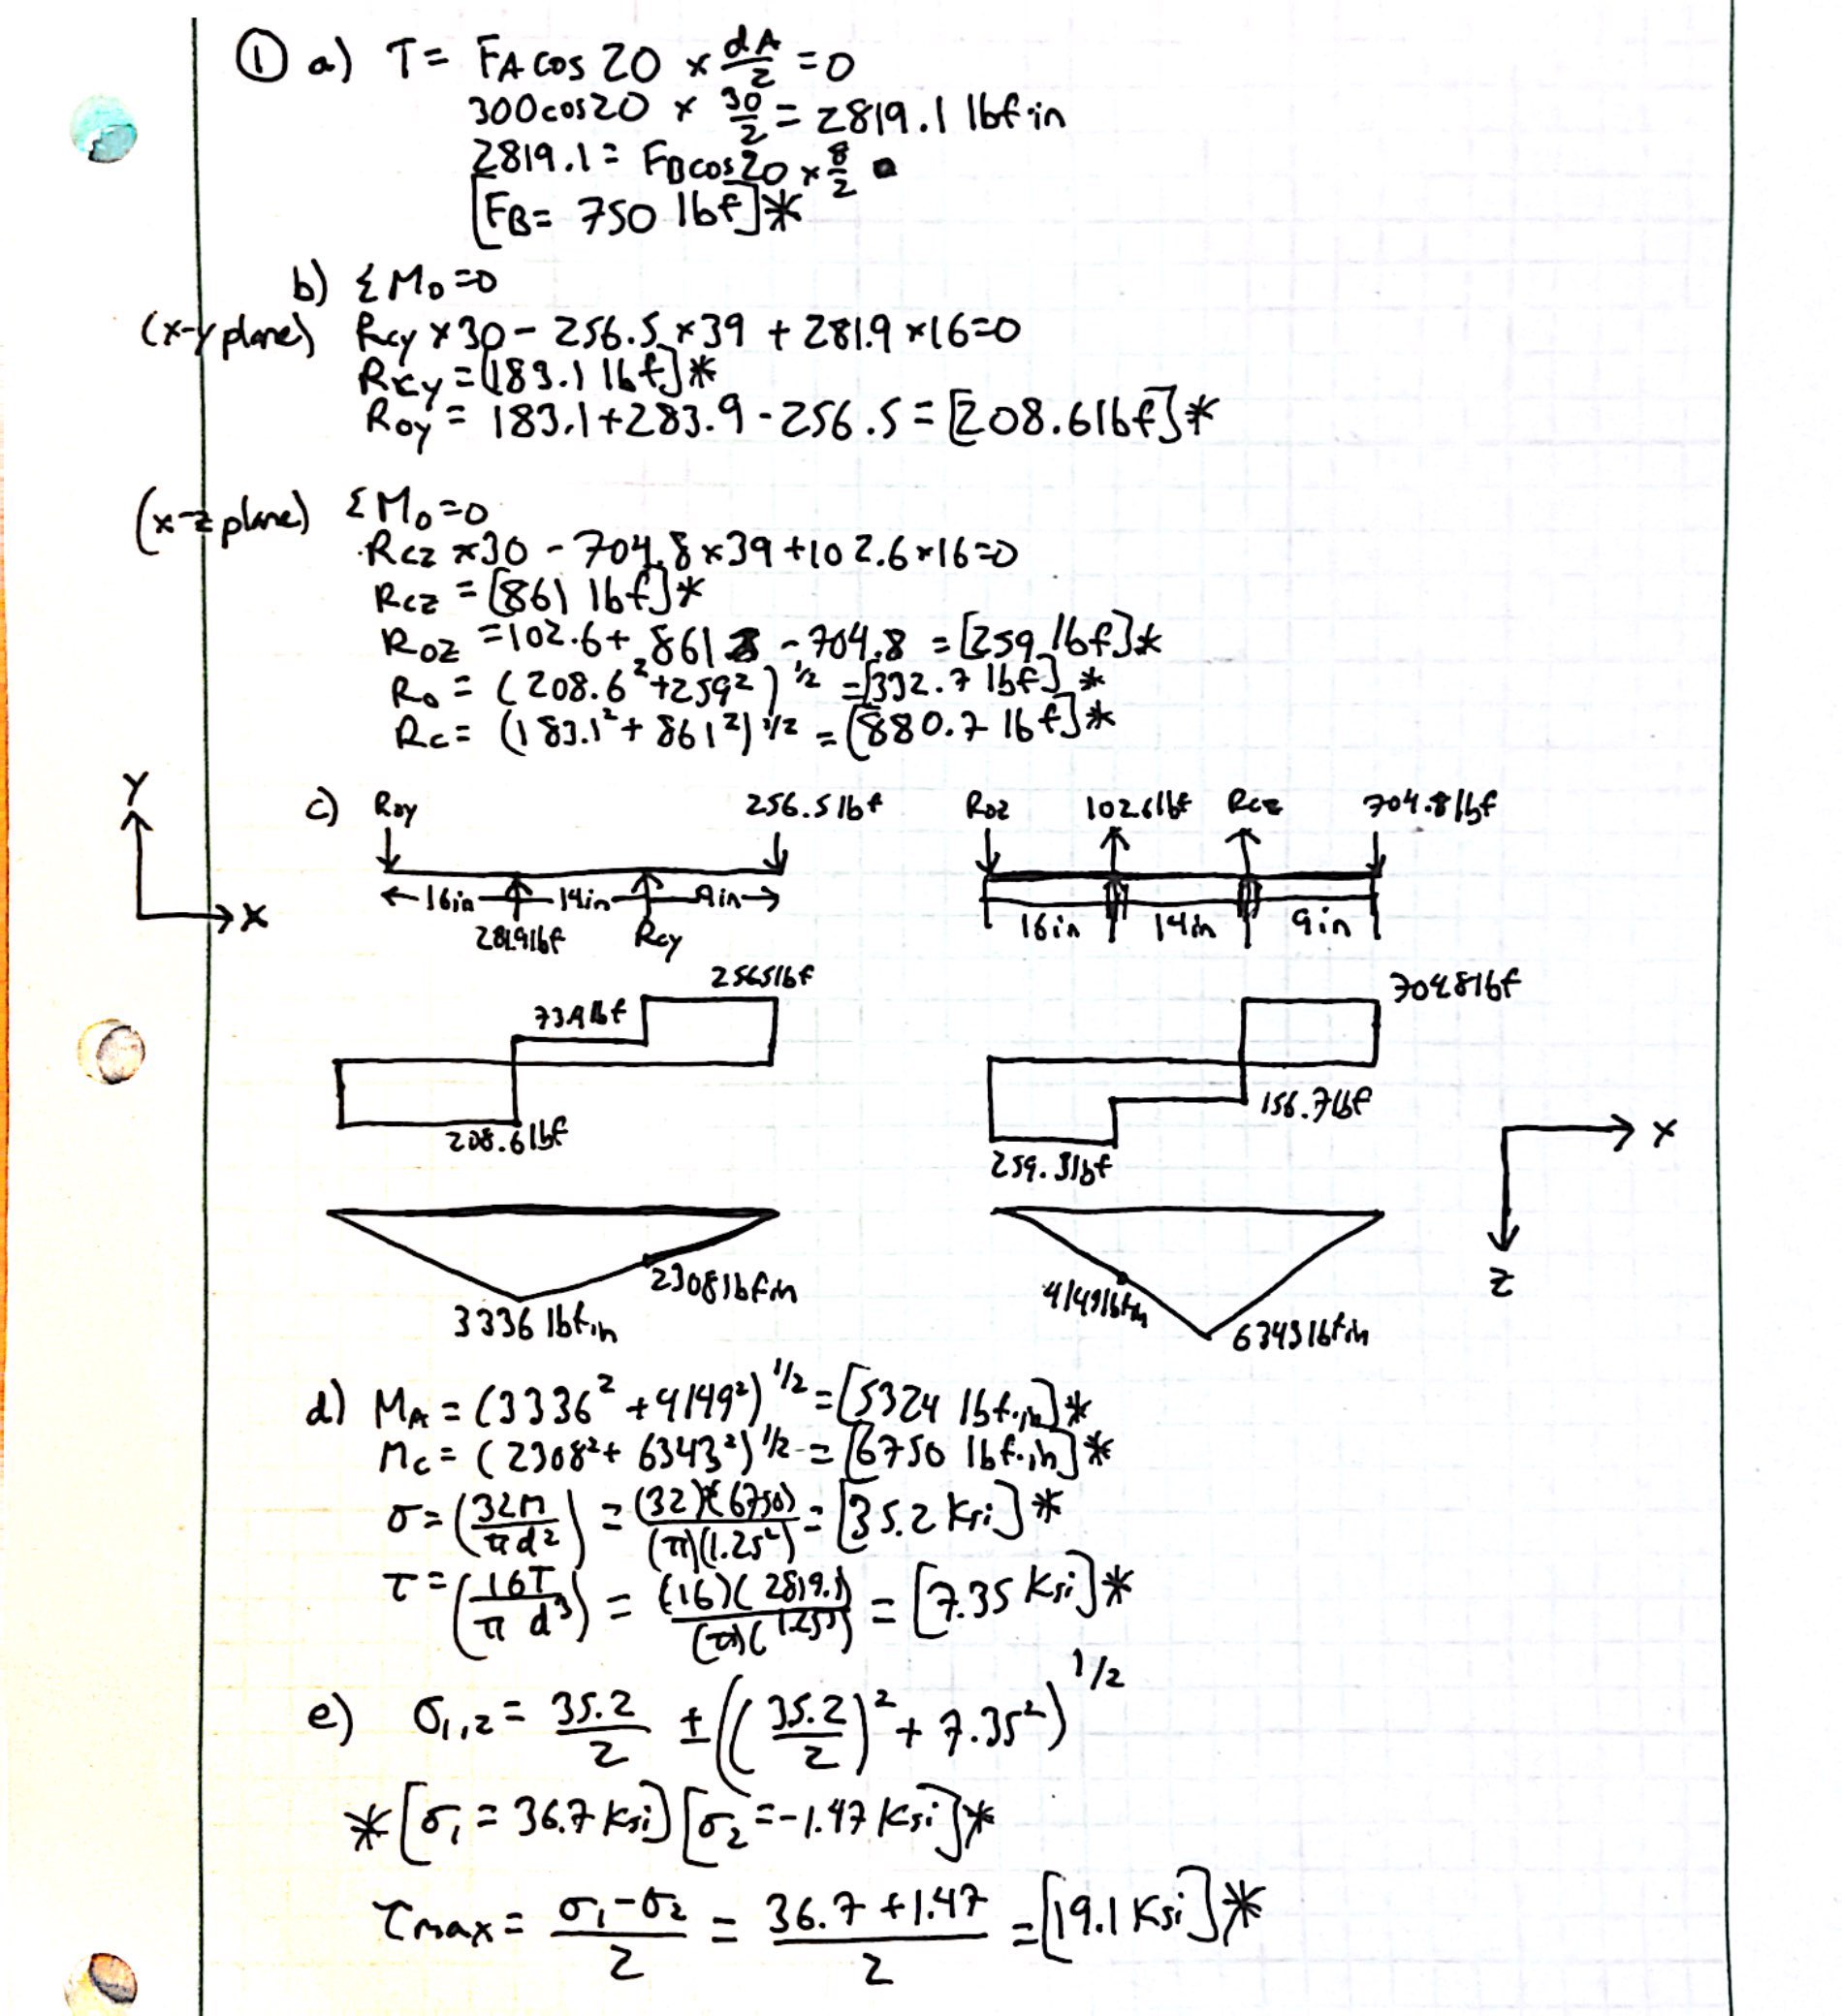 ① a) T = FA cos 20 × dA/2 = 0
300cos20 × 30/2 = 2819.1 lbf·in
2819.1 = FBcos20 × 8/2
[FB = 750 lbf]*
b) ΣMo=0
(x-y plane) Rcy × 30 - 256.5 × 39 + 281.9 × 16=0
Rcy = [183.1 lbf]*
Roy = 183.1+283.9 - 256.5 = [208.6 lbf]*
(x-z plane) ΣMo=0
Rcz × 30 - 704.8 × 39 + 102.6 × 16=0
Rcz = [861 lbf]*
Roz = 102.6 + 861 - 704.8 = [259 lbf]*
Ro = (208.6² + 259²)^1/2 = [332.7 lbf]*
Rc = (183.1² + 861²)^1/2 = [880.7 lbf]*
Y
X
c) Roy 256.5 lbf
16in 14in 9in
281.9lbf Rcy
Roz 102.6lbf Rcz 704.8lbf
16in 14in 9in
256.5lbf
73.9lbf
208.6lbf
704.8lbf
156.7lbf
259.3lbf
X
Z
2308lbfin
3336 lbf.in
4149lbfin
6343lbfin
d) MA = (3336² + 4149²)^1/2 = [5324 lbf.in]*
Mc = (2308² + 6343²)^1/2 = [6750 lbf.in]*
σ = (32M/πd²) = (32)(6750)/(π)(1.25²) = [35.2 Ksi]*
τ = (16T/πd³) = (16)(2819.1)/(π)(1.25³) = [7.35 Ksi]*
e) σ1,2 = 35.2/2 ± ((35.2/2)² + 7.35²)^1/2
*[σ1 = 36.7 Ksi] [σ2 = -1.47 Ksi]*
τmax = σ1-σ2/2 = 36.7 + 1.47/2 = [19.1 Ksi]*